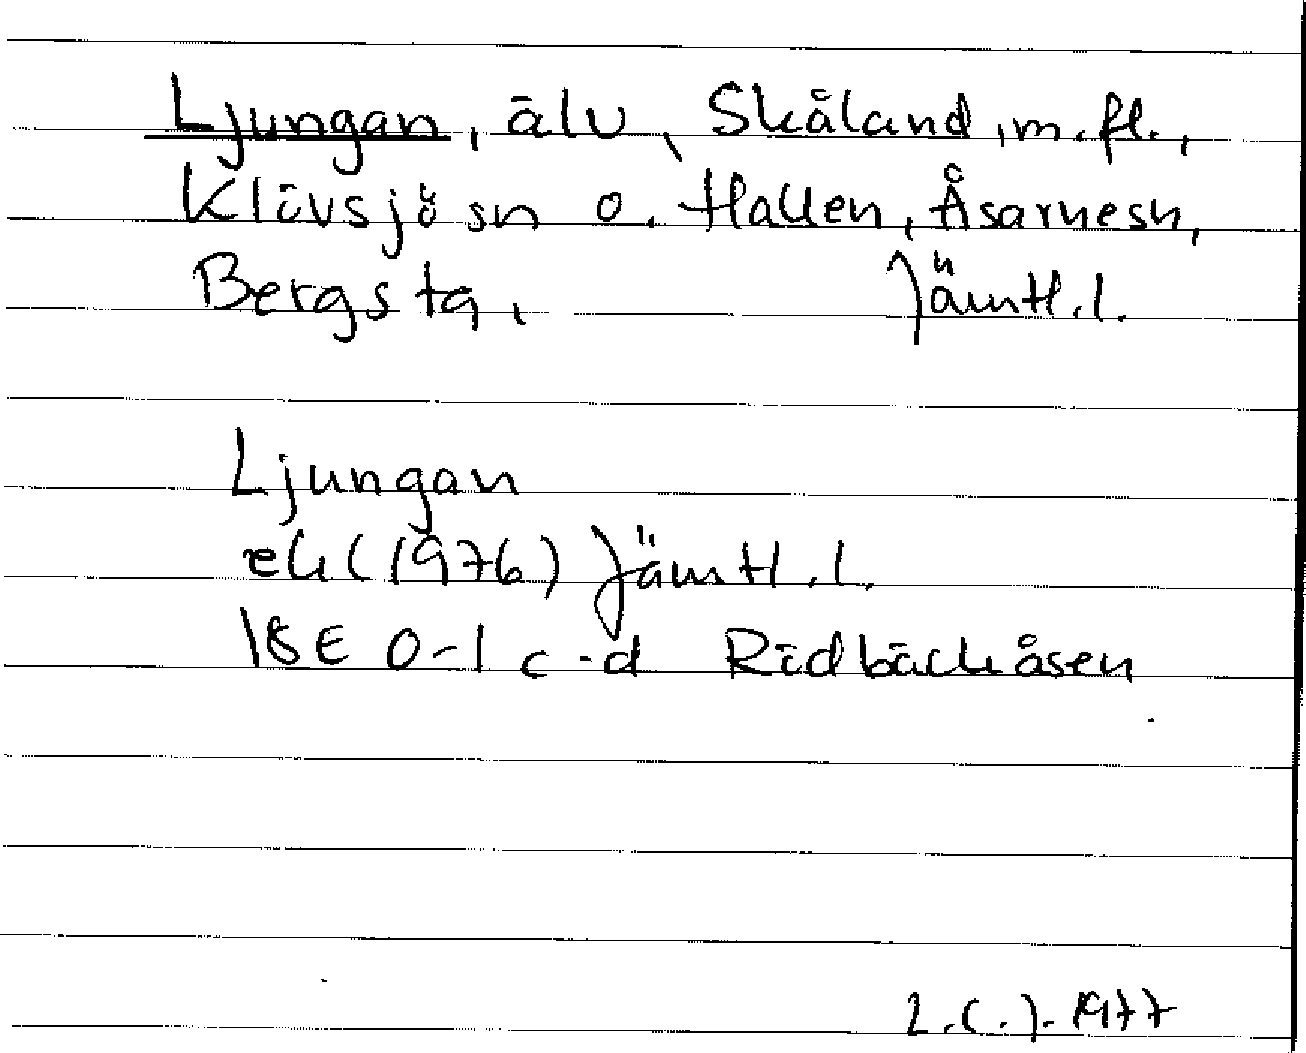 Ljungan, älv, Skåland, m.fl.,
Klövsjö sn o. Hallen, Åsarnesn,
Bergs tg, Jämtl.l.
Ljungan
ek (1976) Jämtl.l.
18E 0-1 c-d Rödbäckåsen
L.C.J. 1977